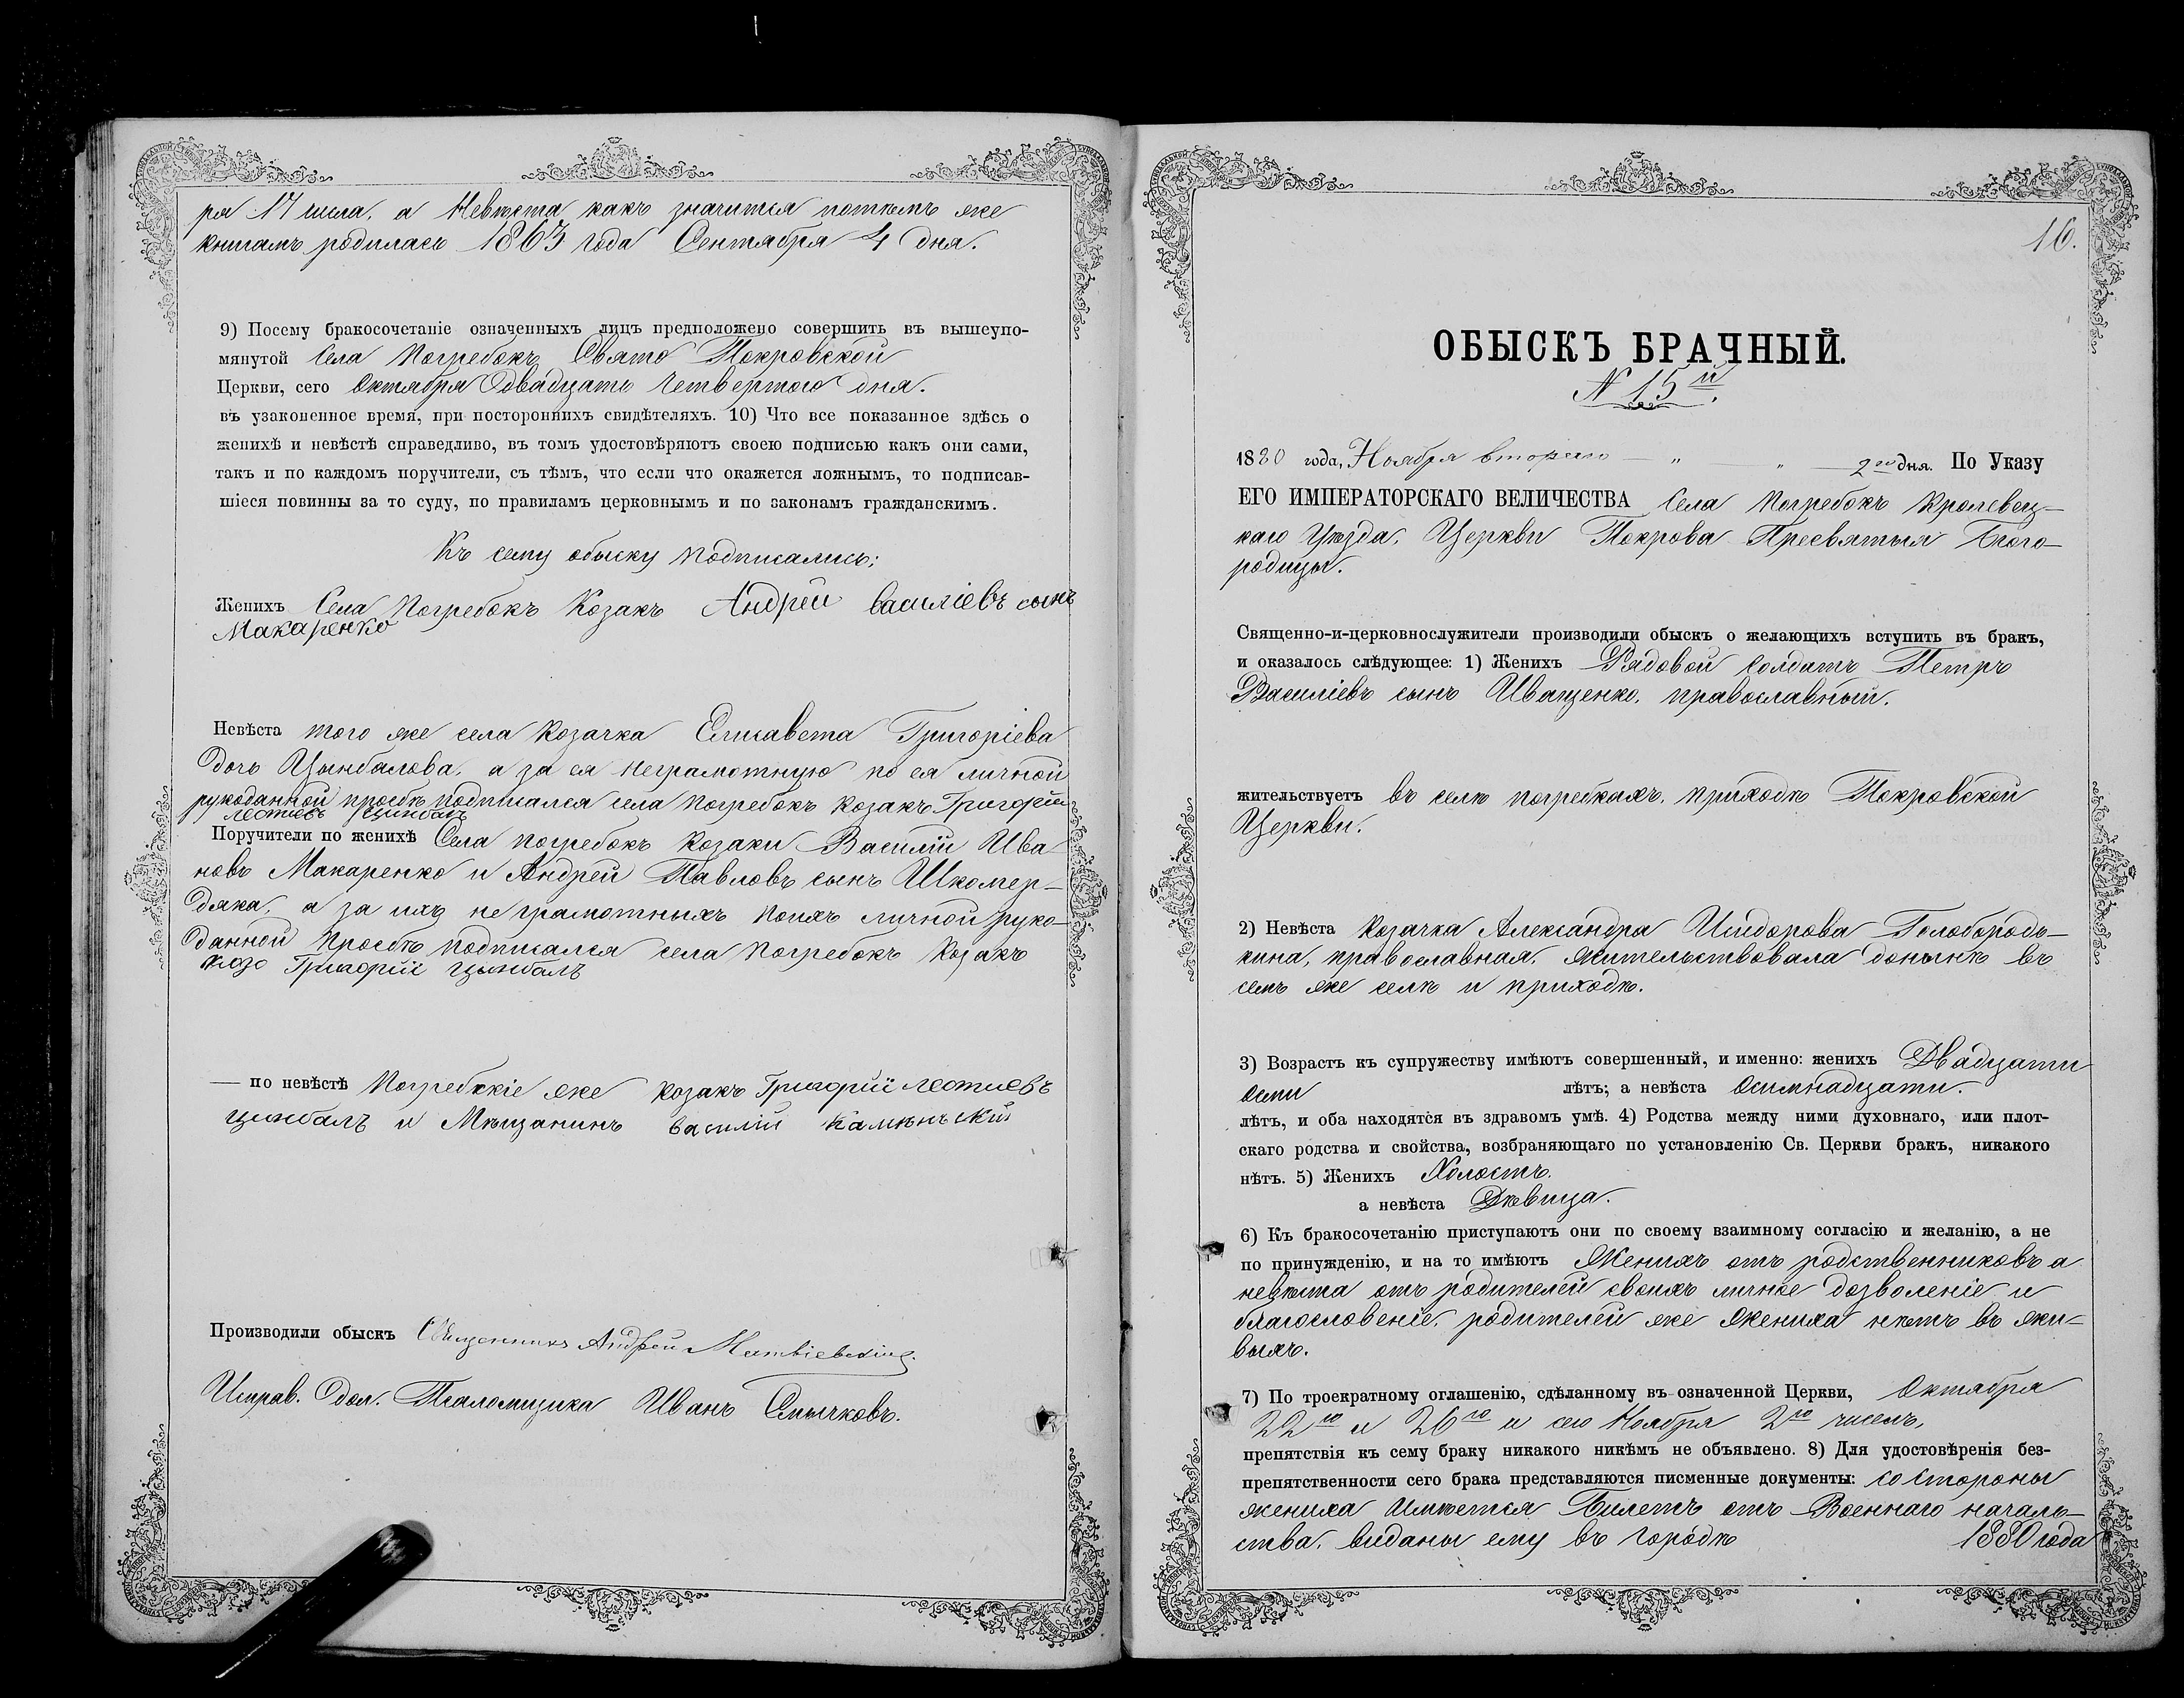 ря 17 числа, а Невѣста какъ значится потѣмъ же
книгамъ родилась 1863 года Сентября 4 дня.
9) Посему бракосочетаніе означенныхъ лицъ предположено совершить въ вышеупо-
мянутой Села Погребокъ Свято Покровской
Церкви, сего Октября двадцать четвертого дня.
въ узаконенное время, при постороннихъ свидѣтеляхъ. 10) Что все показанное здѣсь о
женихѣ и невѣстѣ справедливо, въ томъ удостовѣряютъ своею подписью какъ они сами,
такъ и по каждомъ поручители, съ тѣмъ, что если что окажется ложнымъ, то подписав-
шіеся повинны за то суду, по правиламъ церковнымъ и по законамъ гражданскимъ.
Къ сему обыску подписались:
Женихъ Села Погребокъ Козакъ Андрей василіевъ сынъ
Макаренко
Невѣста того же села козачка Елисавета Григоріева
дочь Цынбалова, а за ея неграмотную по ея личной
рукоданной просьбѣ подписался села Погребокъ козакъ Григорій
леотиевъ цинбалъ
Поручители по женихѣ Села Погребокъ козаки Василій Ива-
новъ Макаренко и Андрей Павловъ сынъ Шкомер-
дяка, а за ихъ не грамотныхъ поихъ личной руко-
данной просьбѣ подписался села Погребокъ Козакъ
Григорій цынбалъ
— по невѣстѣ Погребскіе же козакъ Григорій леотиевъ
цинбалъ и Мѣщанинъ василій Камѣнъскій
Производили обыскъ Священникъ Андрей Матвіевскій.
Исправ. дол. Псаломщика Иванъ Смычковъ.
16.
ОБЫСКЪ БРАЧНЫЙ.
N 15й.
1880 года, Ноября второго — „ — „ — 2го дня. По Указу
ЕГО ИМПЕРАТОРСКАГО ВЕЛИЧЕСТВА Села Погребокъ Кролевец-
каго Уѣзда, Церкви Покрова Пресвятыя Бого-
родицы.
Священно-и-церковнослужители производили обыскъ о желающихъ вступить въ бракъ,
и оказалось слѣдующее: 1) Женихъ Рядовой солдатъ Петръ
Василіевъ сынъ Иващенко, православный.
жительствуетъ въ селѣ погребкахъ, приходѣ Покровской
Церкви.
2) Невѣста козачка Александра Исидорова Голобородь-
кина, православная, жительствовала донынѣ въ
семъ же селѣ и приходѣ.
3) Возрастъ къ супружеству имѣютъ совершенный, и именно: женихъ Двадцати
осми лѣтъ; а невѣста осимнадцати.
лѣтъ, и оба находятся въ здравомъ умѣ. 4) Родства между ними духовнаго, или плот-
скаго родства и свойства, возбраняющаго по установленію Св. Церкви бракъ, никакого
нѣтъ. 5) Женихъ Холостъ.
а невѣста Дѣвица.
6) Къ бракосочетанію приступаютъ они по своему взаимному согласію и желанію, а не
по принужденію, и на то имѣютъ Женихъ отъ родственниковъ а
невѣста отъ родителей своихъ личное дозволеніе и
благословеніе, родителей же жениха нѣтъ въ жи-
выхъ.
7) По троекратному оглашенію, сдѣланному въ означенной Церкви, Октября
22го и 26го и сего Ноября 2го чиселъ,
препятствія къ сему браку никакого никѣмъ не объявлено. 8) Для удостовѣренія без-
препятственности сего брака представляются писменные документы: со стороны
жениха имѣется Билетъ отъ Военнаго началь-
ства, виданы ему въ городѣ 1880 года